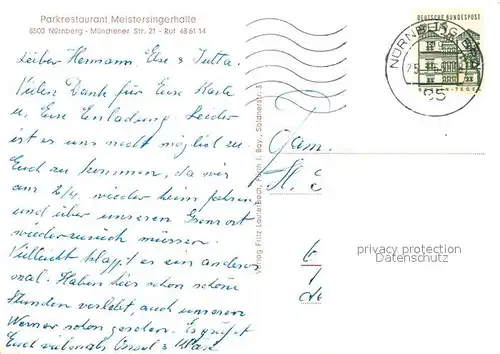 Parkrestaurant Meistersingerhalle
8500 Nürnberg - Münchener Str. 21 - Ruf 48 61 14
Lieber Hermann, Else & Jutta.
Vielen Dank für Eure Karte
u. Eure Einladung. Leider
ist es uns nicht möglich zu
Euch zu kommen, da wir
am 2/4 wieder heim fahren,
und über unseren Grenzort
wieder zurück müssen.
Vielleicht klappt es ein anderes
mal. Haben hier schon schöne
Stunden verlebt, auch unseren
Werner schon gesehen. Es grüßt
Euch vielmals &
Verlag Fritz Lauterbach, Fürth i. Bay., Soldnerstr. 3
DEUTSCHE BUNDESPOST
NÜRNBERG
85
BERLIN-TEGEL
Fam.
H.
privacy protection
DanKM.de